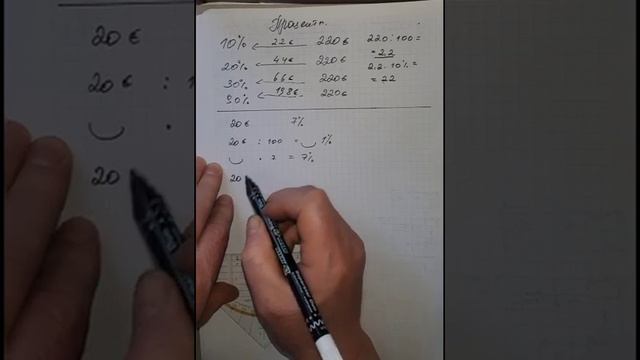 Проценти.
10% 22€ 220€ 220:100=
= 2.2
20% 44€ 220€ 2.2 · 10% =
30% 66€ 220€ = 22
90% 198€ 220€
20€ 7%
20€ : 100 = 1%
· 7 = 7%
20